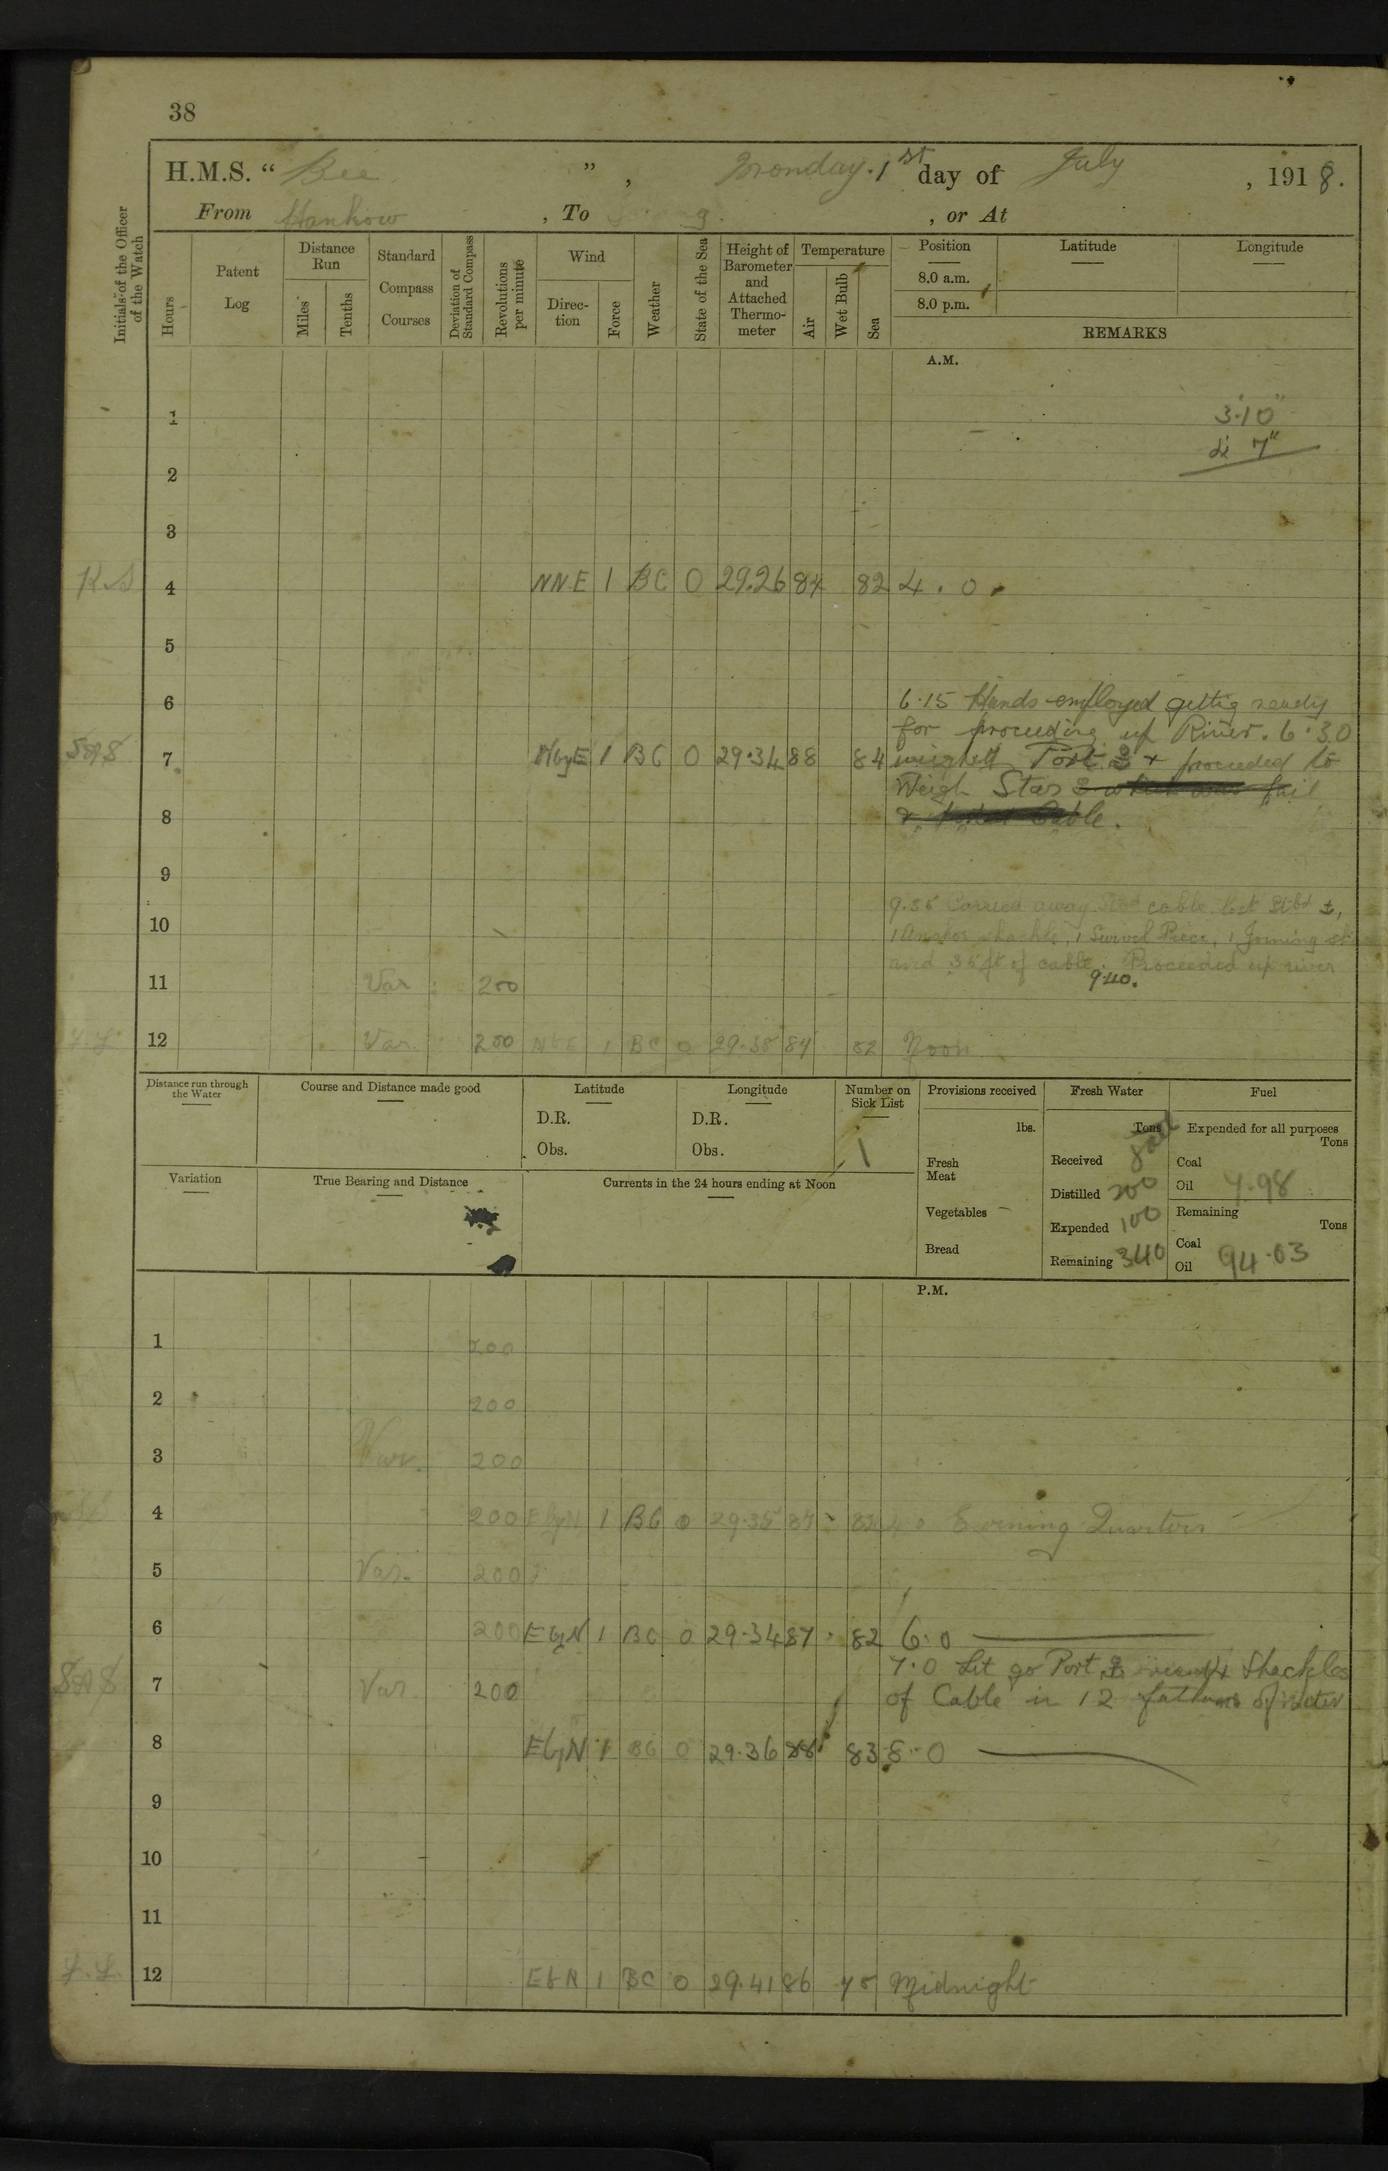 38
H.M.S. “ Bee ” , Monday. 1st day of July , 1918.
From Hankow , To , or At
Initials of the Officer of the Watch
Hours
Patent Log
Distance Run
Miles
Tenths
Standard Compass Courses
Deviation of Standard Compass
Revolutions per minute
Wind
Direc-tion
Force
Weather
State of the Sea
Height of Barometer and Attached Thermo-meter
Temperature
Air
Wet Bulb
Sea
Position
8.0 a.m.
8.0 p.m.
Latitude
Longitude
REMARKS
A.M.
1 3.10"
2 7"
3
4 NNE 1 BC 0 29.26 84 82 4.0
5
6 6.15 Hands employed gettig ready
for proceeding up River. 6.30
7 NbyE 1 BC 0 29.34 88 84 weighed Port ⚓ + proceeded to
Weigh Star ⚓
8 Cable.
9
9.35 Carried away Stbd cable lost Stbd ⚓,
10 1 Anchor shackle, 1 Swivel Piece, 1 Joining
and 35 ft of cable. Proceeded up river
11 Var 200 9.40.
12 Var. 200 NbE 1 BC 0 29.38 84 82 Noon
Distance run through the Water
Course and Distance made good
Latitude
D.R.
Obs.
Longitude
D.R.
Obs.
Number on Sick List
1
Provisions received
lbs.
Fresh Meat
Vegetables
Bread
Fresh Water
Tons
Received
Distilled 200
Expended 100
Remaining 340
Fuel
Expended for all purposes
Tons
Coal
Oil 7.98
Remaining
Tons
Coal
Oil 94.03
Variation
True Bearing and Distance
Currents in the 24 hours ending at Noon
P.M.
1 200
2 200
3 Var. 200
4 200 EbyN 1 BC 0 29.35 87 82 4 0 Evening Quarters
5 Var. 200
6 200 EbyN 1 BC 0 29.34 87 82 6.0
7.0 Let go Port ⚓ Shackles
7 Var 200 of Cable in 12 fathoms of water
8 EbyN 1 BC 0 29.36 88 83 8.0
9
10
11
12 EbN 1 BC 0 29.41 86 75 Midnight